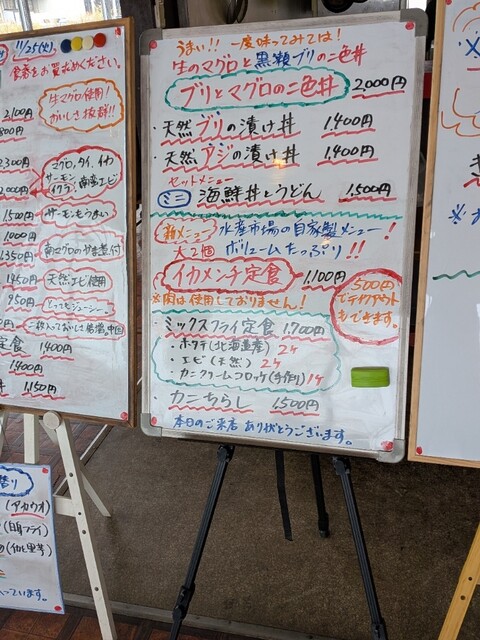 11/25(火)
食券をお買求めください。
生マグロ使用!
おいしさ抜群!!
2,100円
800円
2,300円
マグロ、タイ、イカ
サーモン
イクラ、南蛮エビ
2,000円
1,500円
サーモンもうまい
1,000円
1,350円
南マグロのやま煮付
1,450円
天然エビ使用
950円
とってもジューシー。
定食 1,400円
1,400円
1,150円
(アカウオ)
うまい!! 一度味ってみては!
生のマグロと黒瀬ブリの二色丼
ブリとマグロの二色丼 2,000円
・天然ブリの漬け丼 1,400円
・天然アジの漬け丼 1,400円
セットメニュー
ミニ 海鮮丼とうどん 1,500円
新メニュー 水産市場の自家製メニュー!
大2個 ボリュームたっぷり!!
イカメンチ定食 1,100円
※肉は使用しておりません!
500円
でテイクアウト
もできます。
・ミックスフライ定食 1,700円
・ホタテ(北海道産) 2ヶ
・エビ(天然) 2ヶ
・カニクリームコロッケ(手作り) 1ヶ
・カニちらし 1,500円
本日のご来店 ありがとうございます。